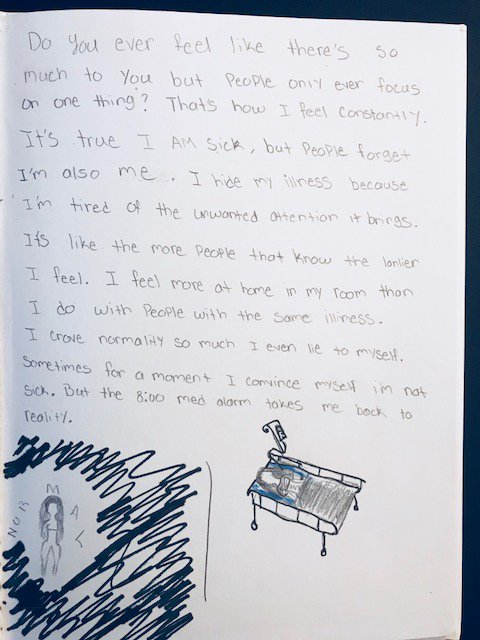 Do you ever feel like there's so
much to you but people only ever focus
on one thing? That's how I feel constantly.
It's true I AM sick, but people forget
I'm also me. I hide my illness because
I'm tired of the unwanted attention it brings.
It's like the more people that know the lonlier
I feel. I feel more at home in my room than
I do with people with the same illness.
I crave normality so much I even lie to myself.
Sometimes for a moment I convince myself i'm not
sick. But the 8:00 med alarm takes me back to
reality.
NORMAL